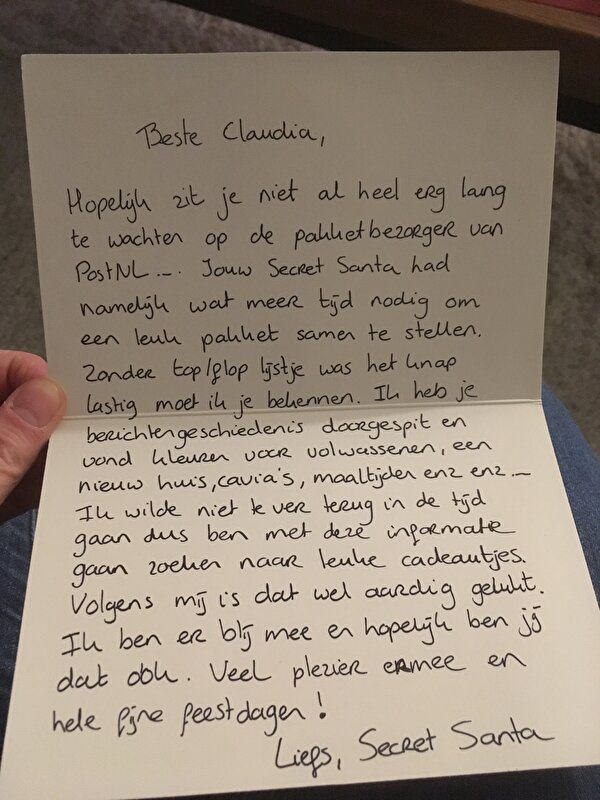 Beste Claudia,
Hopelijk zit je niet al heel erg lang
te wachten op de pakketbezorger van
PostNL.... Jouw Secret Santa had
namelijk wat meer tijd nodig om
een leuk pakket samen te stellen.
Zonder top/flop lijstje was het knap
lastig moet ik je bekennen. Ik heb je
berichtengeschiedenis doorgespit en
vond kleuren voor volwassenen, een
nieuw huis, cavia's, maaltijden enz enz...
Ik wilde niet te ver terug in de tijd
gaan dus ben met deze informatie
gaan zoeken naar leuke cadeautjes.
Volgens mij is dat wel aardig gelukt.
Ik ben er blij mee en hopelijk ben jij
dat ook. Veel plezier ermee en
hele fijne feestdagen!
Liefs, Secret Santa